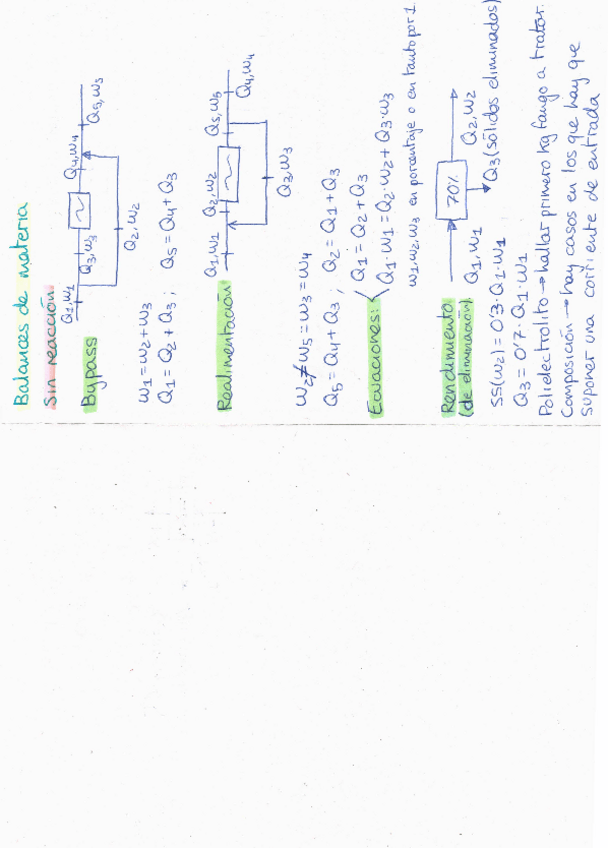 Balances de materia
Sin reacción
Bypass
Q1, w1
Q3, w3
Q4, w4
Q5, w5
Q2, w2
w1 = w2 + w3
Q1 = Q2 + Q3 ; Q5 = Q4 + Q3
Realimentación
Q1, w1
Q2, w2
Q5, w5
Q4, w4
Q3, w3
w2 ≠ w5 = w3 = w4
Q5 = Q4 + Q3 ; Q2 = Q1 + Q3
Ecuaciones:
Q1 = Q2 + Q3
Q1 · w1 = Q2 · w2 + Q3 · w3
w1, w2, w3 en porcentaje o en tanto por 1.
Rendimiento
(de eliminación)
70%
Q1, w1
Q2, w2
Q3 (sólidos eliminados)
SS(w2) = 0'3 · Q1 · w1
Q3 = 0'7 · Q1 · w1
Polielectrolito → hallar primero kg fango a tratar.
Composición → hay casos en los que hay que
suponer una corriente de entrada